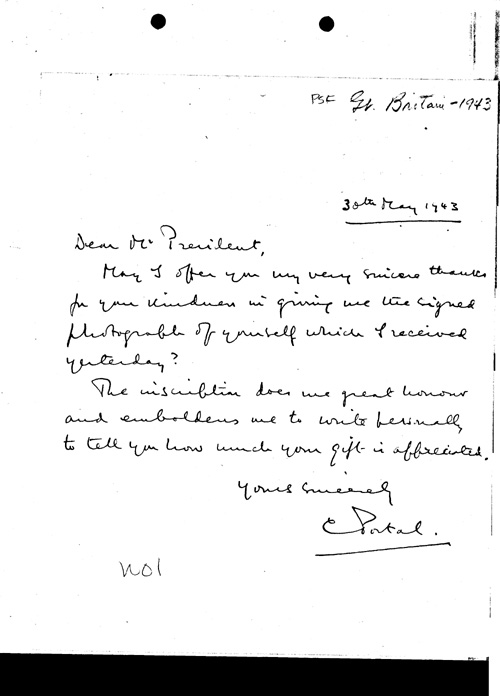 PSF Gt. Britain-1943
30th May 1943
Dear Mr President,
May I offer you my very sincere thanks
for your kindness in giving me the signed
photograph of yourself which I received
yesterday?
The inscription does me great honour
and emboldens me to write personally
to tell you how much your gift is appreciated.
Yours sincerely
C Portal.